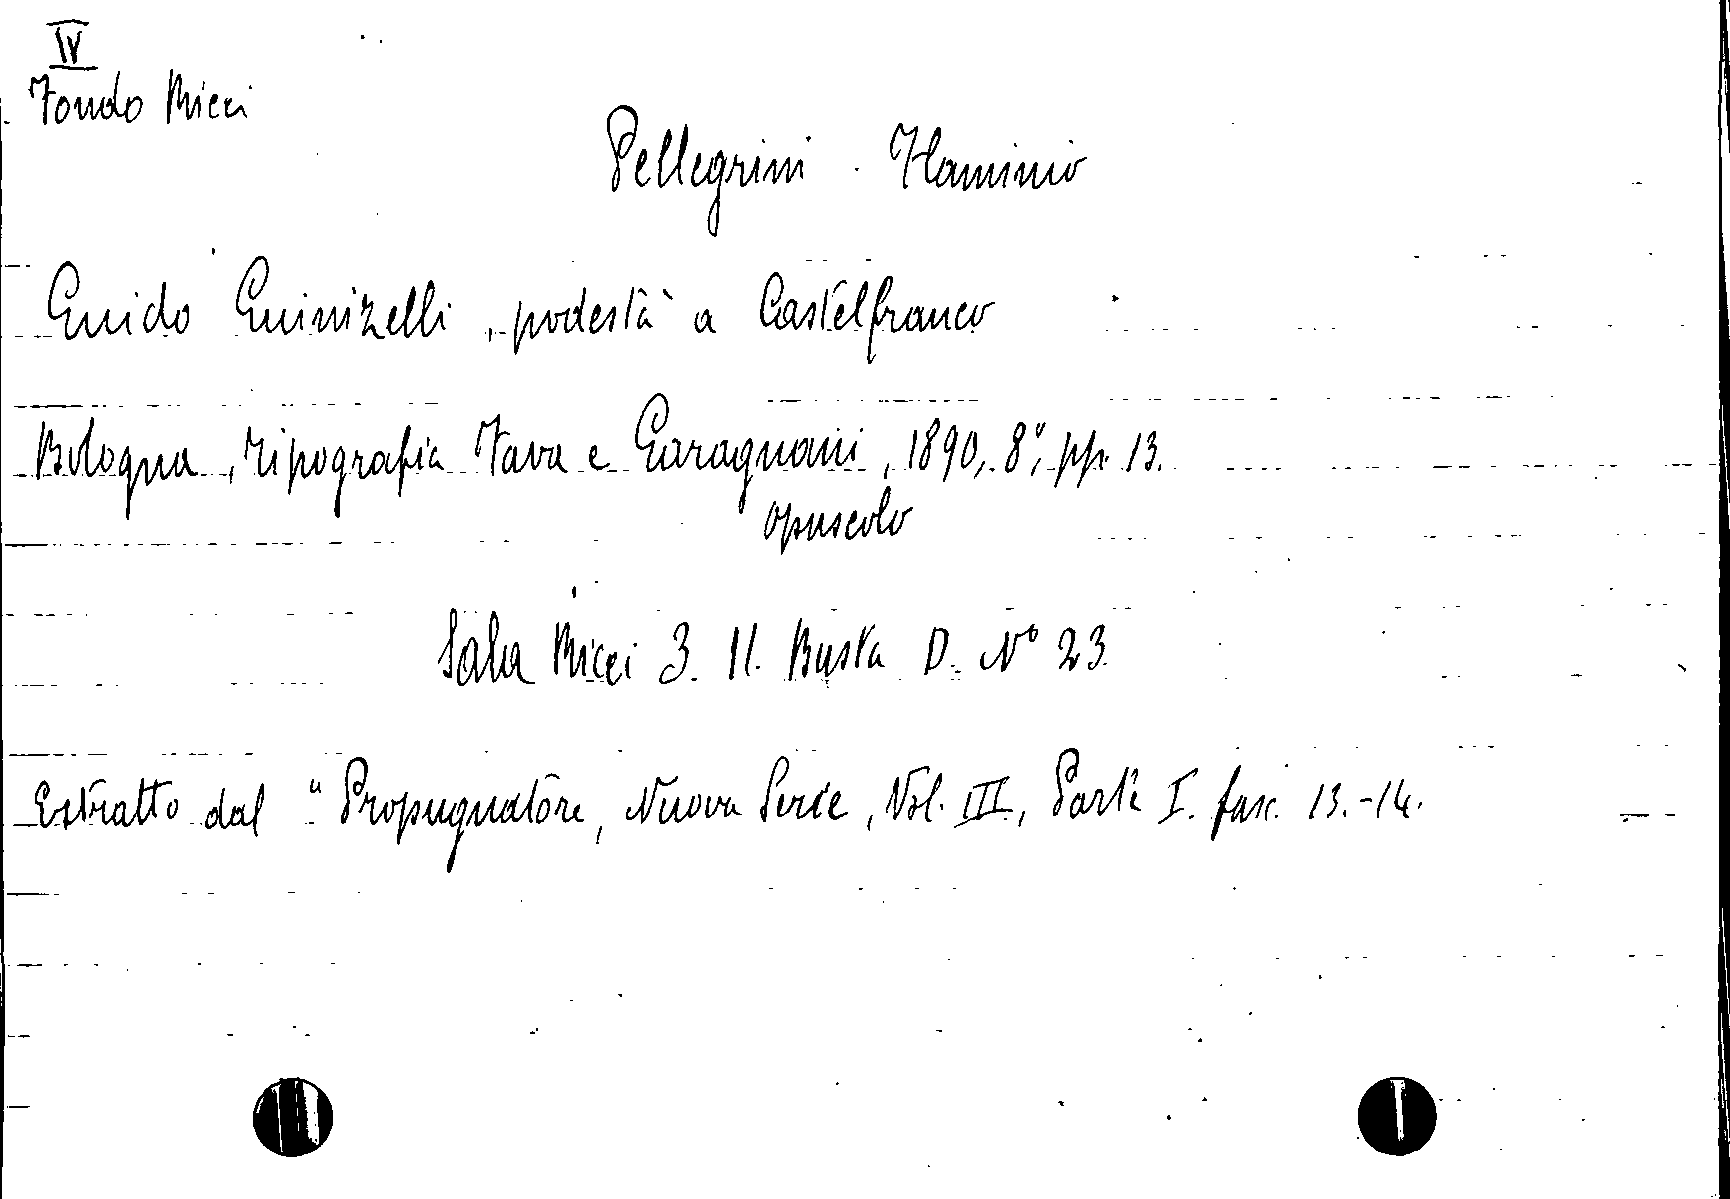 IV
Fondo Ricci
Pellegrini Flaminio
Guido Guinizelli, podestà a Castelfranco
Bologna, Tipografia Fava e Garagnani, 1890, 8°, pp. 13.
opuscolo
Sala Ricci 3. 11. Busta D. N° 23
Estratto dal "Propugnatore, Nuova Serie, Vol. III, Parte I. fasc. 13.-14.